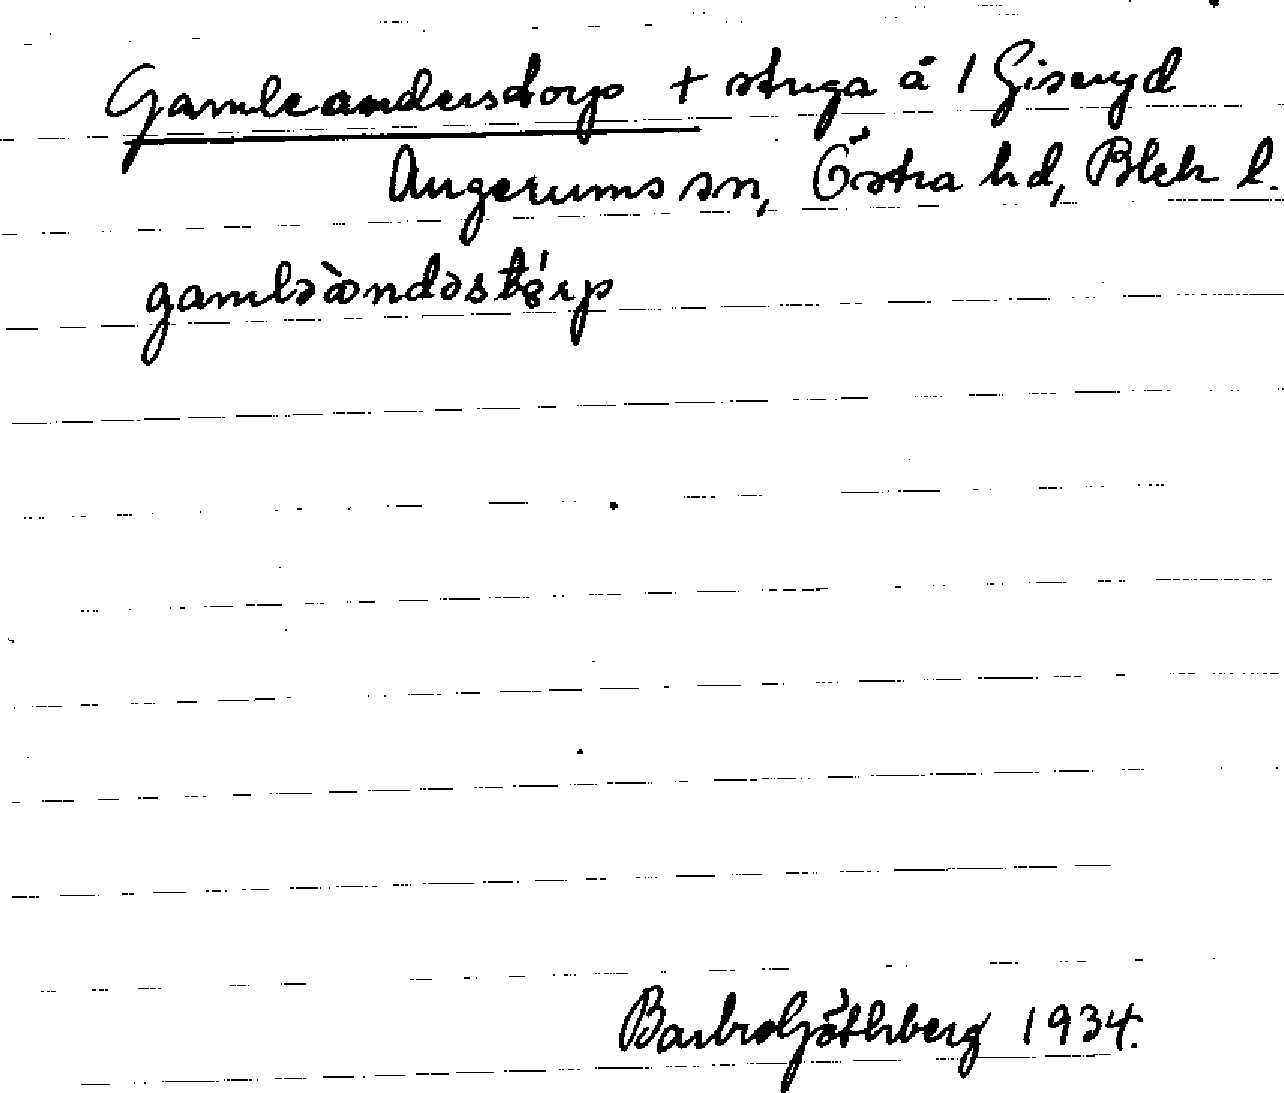 Gamleanderstorp + stuga å 1 Giseryd
Augerums sn, Östra hd, Blek l.
gamləàndəstǿrp
Barbro Göthberg 1934.